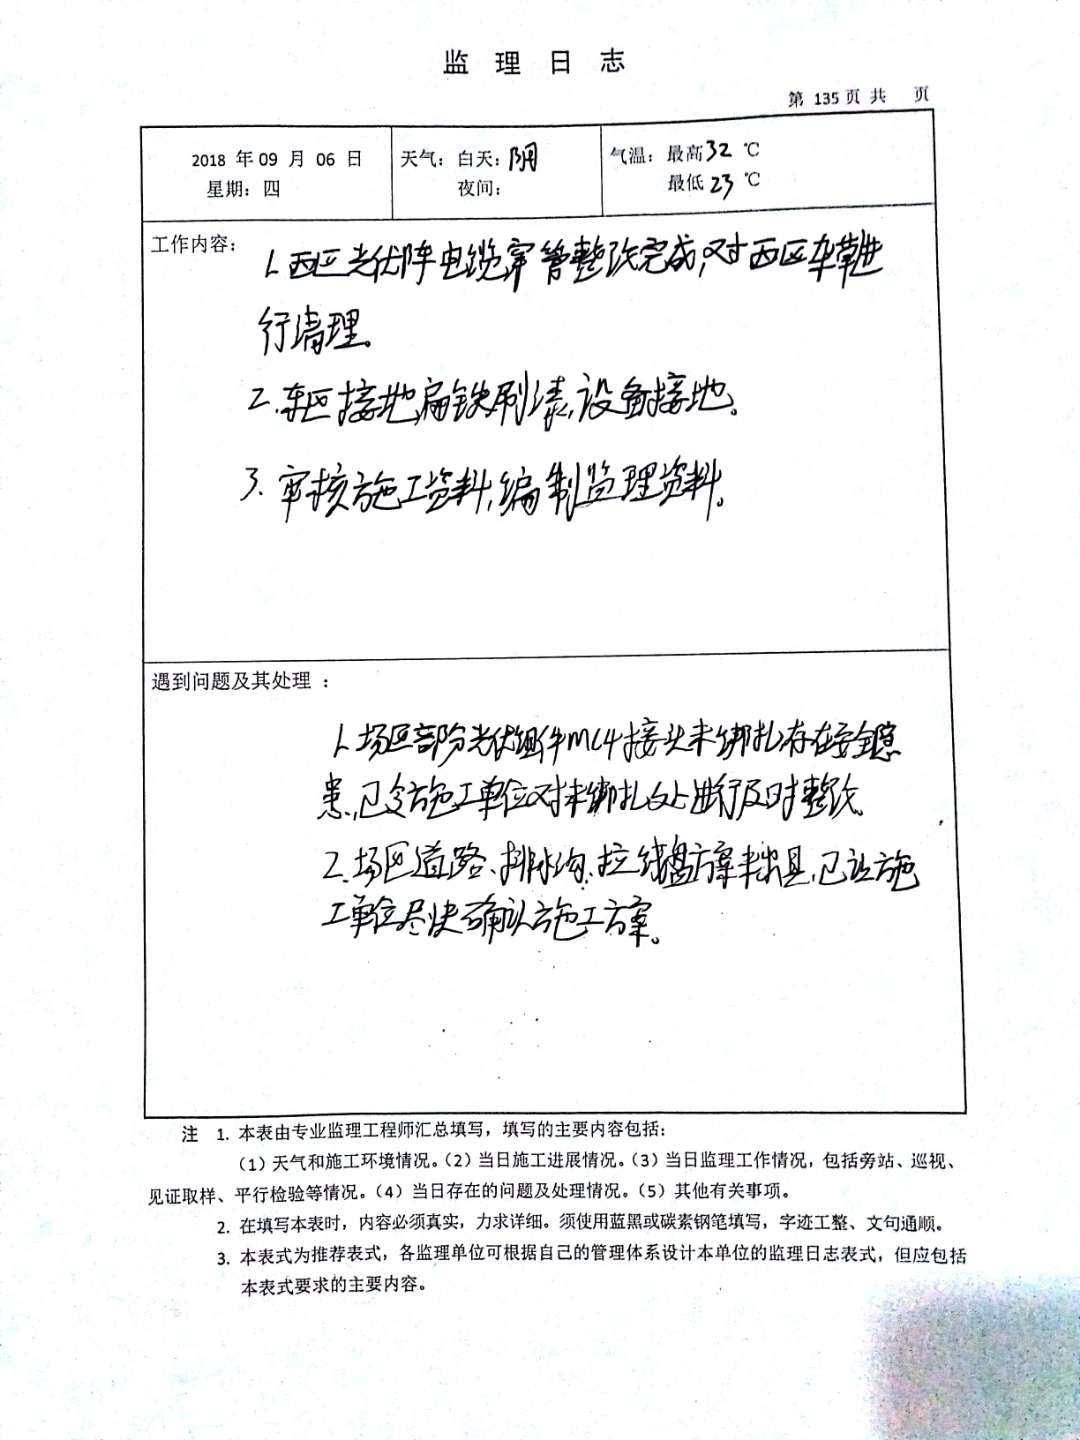 监 理 日 志
第 135 页 共 页
2018 年 09 月 06 日
星期：四
天气：白天：阴
夜间：
气温：最高 32 ℃
最低 23 ℃
工作内容：
1. 西区光伏阵电缆穿管整改完成，对西区杂草进
行清理。
2. 东区接地扁铁刷漆，设备接地。
3. 审核施工资料，编制监理资料。
遇到问题及其处理 ：
1. 场区部分光伏组件MC4接头未绑扎存在安全隐
患，已令施工单位对未绑扎处进行及时整改。
2. 场区道路、排水沟、拉线盘方案未出具，已让施
工单位尽快确认施工方案。
注 1. 本表由专业监理工程师汇总填写，填写的主要内容包括：
（1）天气和施工环境情况。（2）当日施工进展情况。（3）当日监理工作情况，包括旁站、巡视、
见证取样、平行检验等情况。（4）当日存在的问题及处理情况。（5）其他有关事项。
2. 在填写本表时，内容必须真实，力求详细。须使用蓝黑或碳素钢笔填写，字迹工整、文句通顺。
3. 本表式为推荐表式，各监理单位可根据自己的管理体系设计本单位的监理日志表式，但应包括
本表式要求的主要内容。